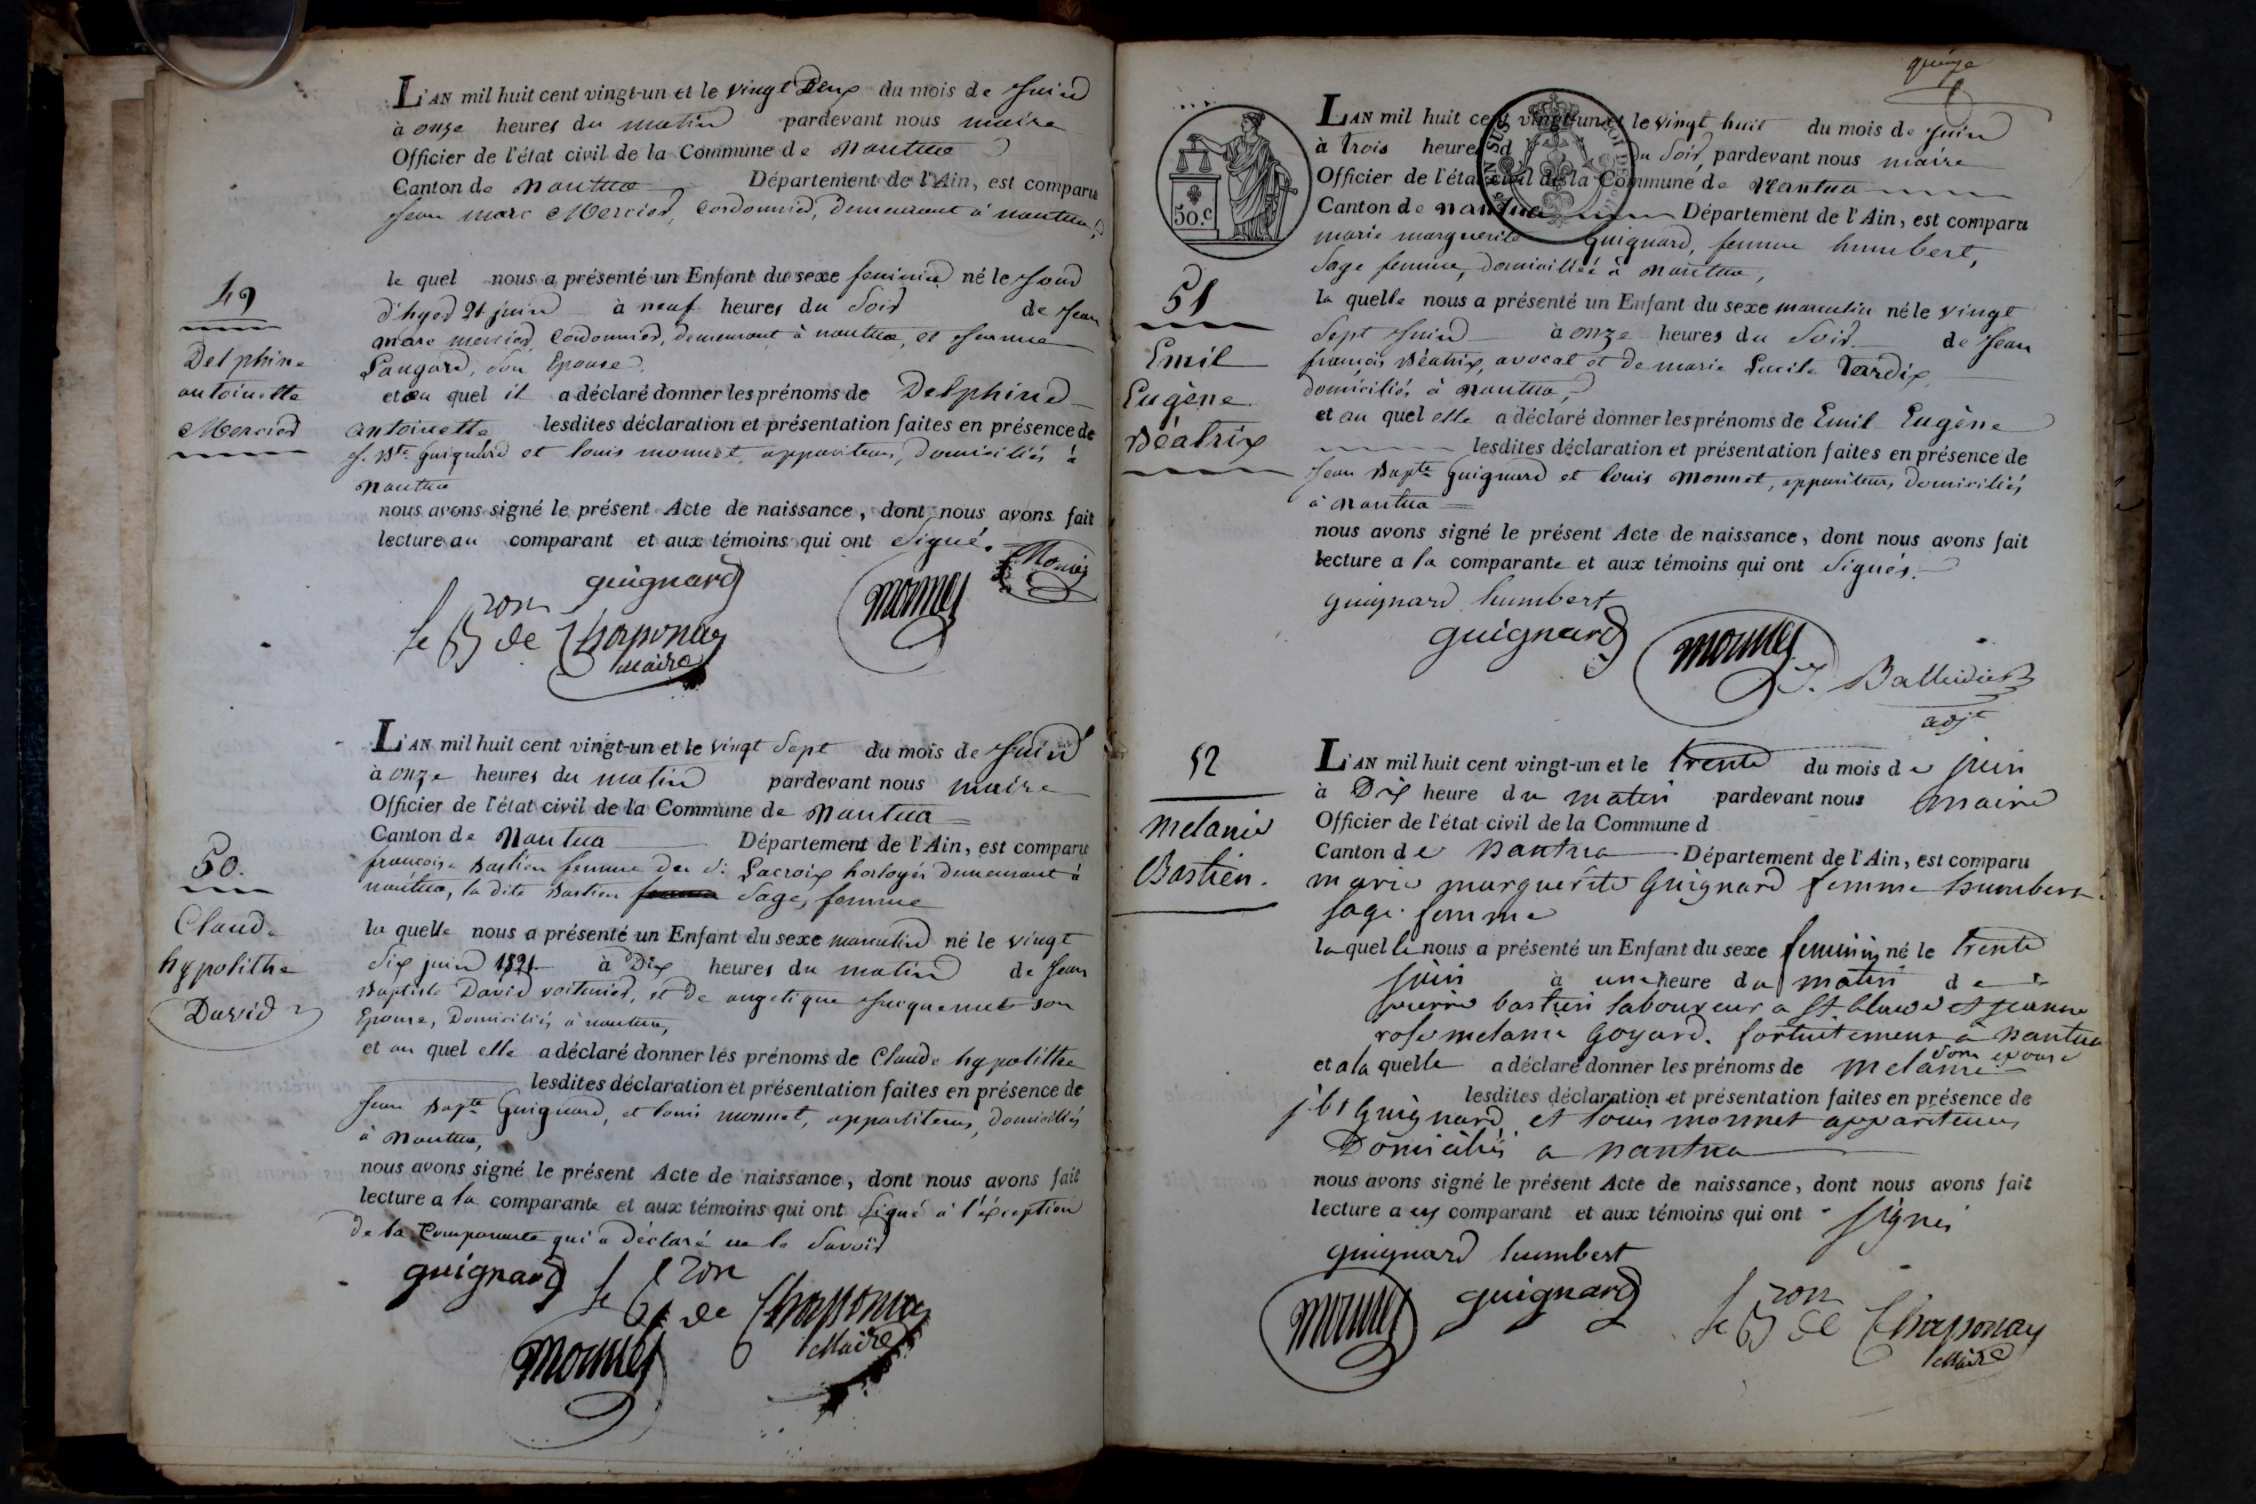 L'AN mil huit cent vingt-un et le vingt Deux du mois de Juin
à onze heures du matin pardevant nous maire
Officier de l'état civil de la Commune de Nantua
Canton de Nantua Département de l'Ain, est comparu
Jean marc Mercier, Cordonnier, demeurant à nantua,
49
Delphine
antoinette
Mercier
le quel nous a présenté un Enfant du sexe feminin né le jour
d'hyer 21 juin à neuf heures du Soir de Jean
marc mercier Cordonnier, demeurant à nantua, et Jeanne
Laugard, son Epouse
et au quel il a déclaré donner les prénoms de Delphine
antoinette lesdites déclaration et présentation faites en présence de
J. Bte guignard et louis monnet, appariteurs, domiciliés à
Nantua
nous avons signé le présent Acte de naissance, dont nous avons fait
lecture au comparant et aux témoins qui ont Signé.
guignard Monnet
le Bron de Chaponay
Maire
L'AN mil huit cent vingt-un et le vingt Sept du mois de Juin
à onze heures du matin pardevant nous maire
Officier de l'état civil de la Commune de Nantua
Canton de Nantua Département de l'Ain, est comparu
francoise Bastien femme du Sr. Lacroix horloger demeurant à
nantua, la dite Bastien Sage femme
50.
Claude
hypolithe
David
la quelle nous a présenté un Enfant du sexe masculin né le vingt
Six juin 1821 à Dix heures du matin de Jean
Baptiste David voiturier, et de angelique Jacquemet son
Epouse, Domiciliés à nantua,
et au quel elle a déclaré donner les prénoms de Claude hypolithe
lesdites déclaration et présentation faites en présence de
Jean Bapte Guignard, et louis monnet, appariteurs, domiciliés
à Nantua,
nous avons signé le présent Acte de naissance, dont nous avons fait
lecture a la comparante et aux témoins qui ont Signé à l'éxception
de la Comparante qui a Déclaré ne le Savoir
guignard le Bron de Chaponay
Maire
monnet
quinze
50.C
L'AN mil huit cent vingt-un et le vingt huit du mois de Juin
à trois heures du Soir, pardevant nous maire
Officier de l'état civil de la Commune de Nantua
Canton de Nantua Département de l'Ain, est comparu
marie marguerite Guignard, femme humbert,
Sage femme, domiciliée à Nantua,
51
Emil
Eugène
Béatrix
la quelle nous a présenté un Enfant du sexe masculin né le vingt
Sept Juin à onze heures du Soir de Jean
françois Béatrix, avocat et de marie Lucile Tardix
domiciliés à Nantua,
et au quel elle a déclaré donner les prénoms de Emil Eugène
lesdites déclaration et présentation faites en présence de
Jean Bapte Guignard et louis Monnet, appariteurs, domiciliés
à Nantua
nous avons signé le présent Acte de naissance, dont nous avons fait
lecture a la comparante et aux témoins qui ont Signés.
guignard humbert
guignard monnet
adjt
L'AN mil huit cent vingt-un et le trente du mois de juin
à Dix heure du matin pardevant nous maire
Officier de l'état civil de la Commune d
Canton de Nantua Département de l'Ain, est comparu
marie marguerite Guignard femme humbert
sage femme
52
melanie
Bastien.
laquelle nous a présenté un Enfant du sexe feminin né le trente
juin à une heure du matin de
pierre bastien laboureur a St. Claude et jeanne
rose melanie Goyard. fortuitement a Nantua
son epouse
et a la quelle a déclaré donner les prénoms de melanie
lesdites déclaration et présentation faites en présence de
j. bt Guignard et louis monnet appariteurs
Domiciliés a nantua
nous avons signé le présent Acte de naissance, dont nous avons fait
lecture a comparant et aux témoins qui ont signés
guignard humbert
monnet guignard le Bron de Chaponay
Maire